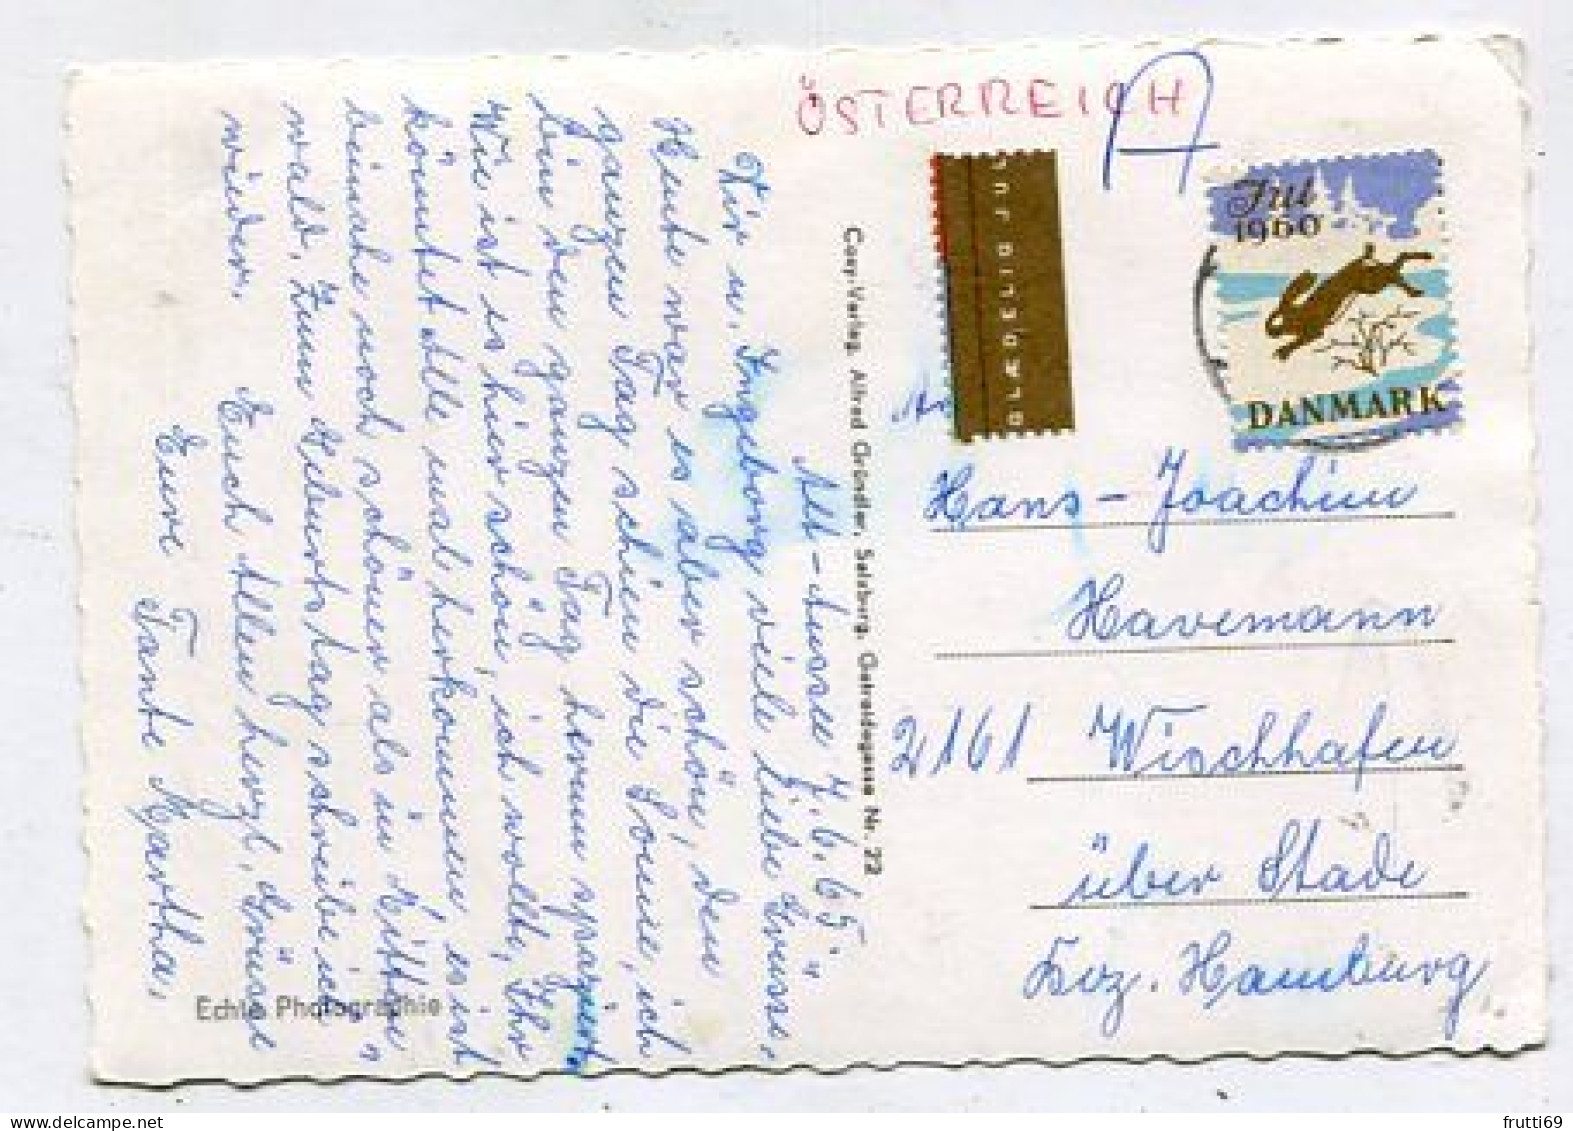 ÖSTERREICH
A
Jul
1960
DANMARK
Alt-Aussee 7.6.65
Dir u. Ingeborg viele liebe Grüsse,
Heute war es aber schön, den
ganzen Tag schien die Sonne, ich
bin den ganzen Tag herum spaziert,
Wie ist es hier schön, ich wollt, Ihr
könntet Alle mal herkommen, es ist
beinahe noch schöner als in
wald. Zum Geburtstag schreibe ich
wieder. Euch Allen herzl. Grüsse
Eure Tante Martha.
Echte Photographie
Cosy-Verlag, Alfred Gründler, Salzburg, Getreidegasse Nr. 22
An
Hans-Joachim
Havemann
2161 Wischhafen
über Stade
Bez. Hamburg
frutti69